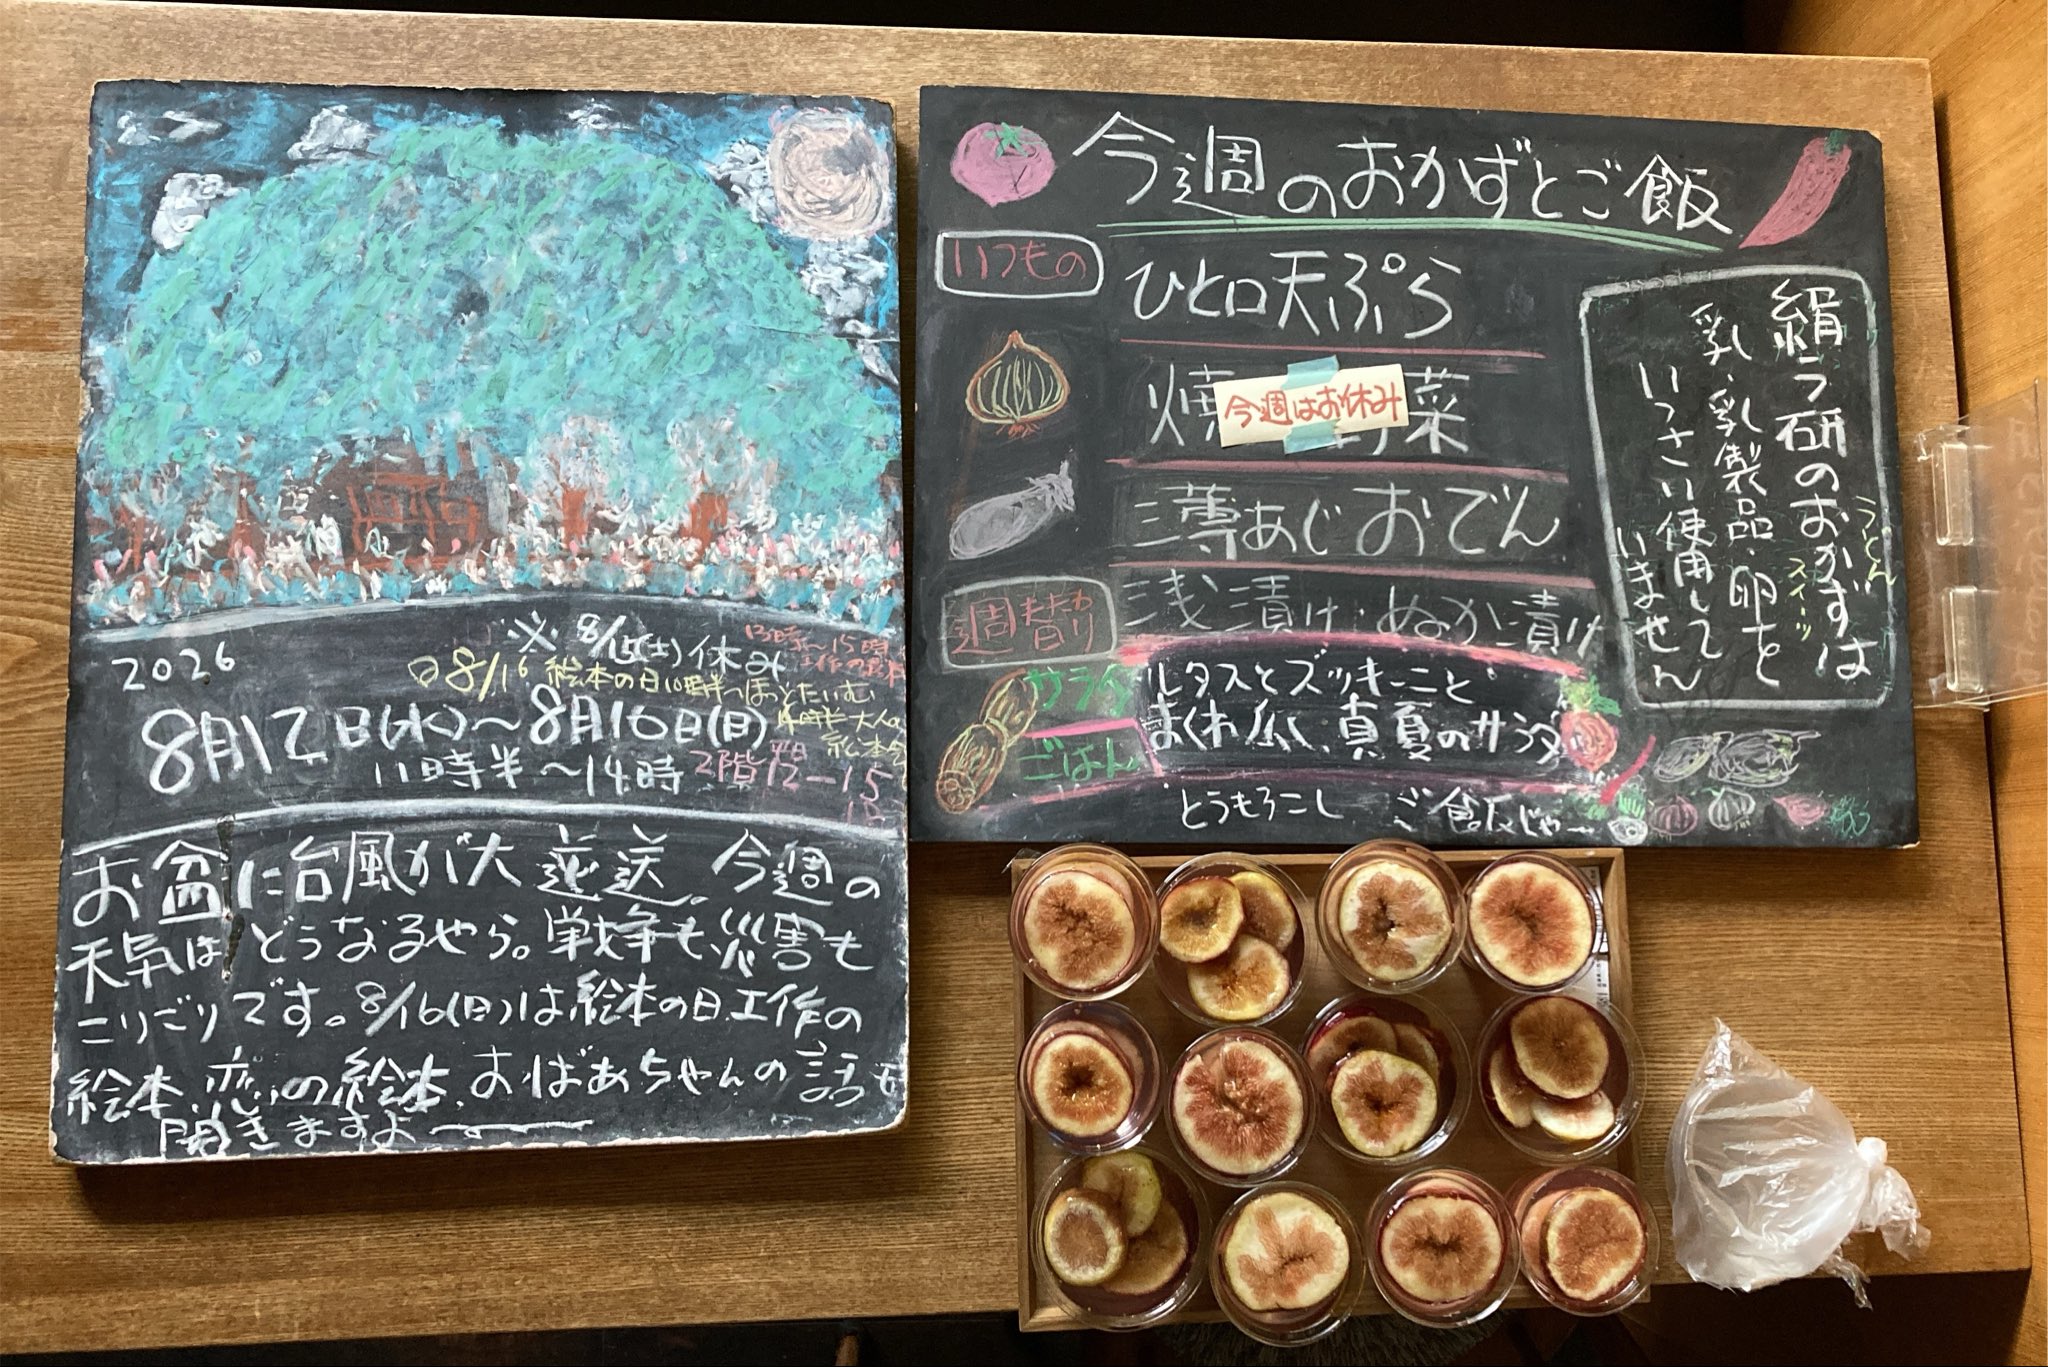 2026
※8/15(土)休み
13時〜15時
8/16 絵本の日 10時半〜ほっとたいむ
8月12日(水)〜8月16日(日)
14時半〜大人の
絵本会
11時半〜14時
2階
お盆に台風が大逆送。今週の
天気はどうなるやら。戦争も災害も
こりごりです。8/16(日)は絵本の日、工作の
絵本、恋の絵本、おばあちゃんの話
開きますよ
今週のおかずとご飯
いつもの
ひと口天ぷら
焼 菜
今週はお休み
薄あじおでん
浅漬け・ぬか漬け
週替わり
サラダ
レタスとズッキーニと
まくわ瓜、真夏のサラダ
ごはん
とうもろこし ご飯じゃー
絹う研のおかずは
うどん
スイーツ
乳、乳製品、卵を
いっさい使用して
いません